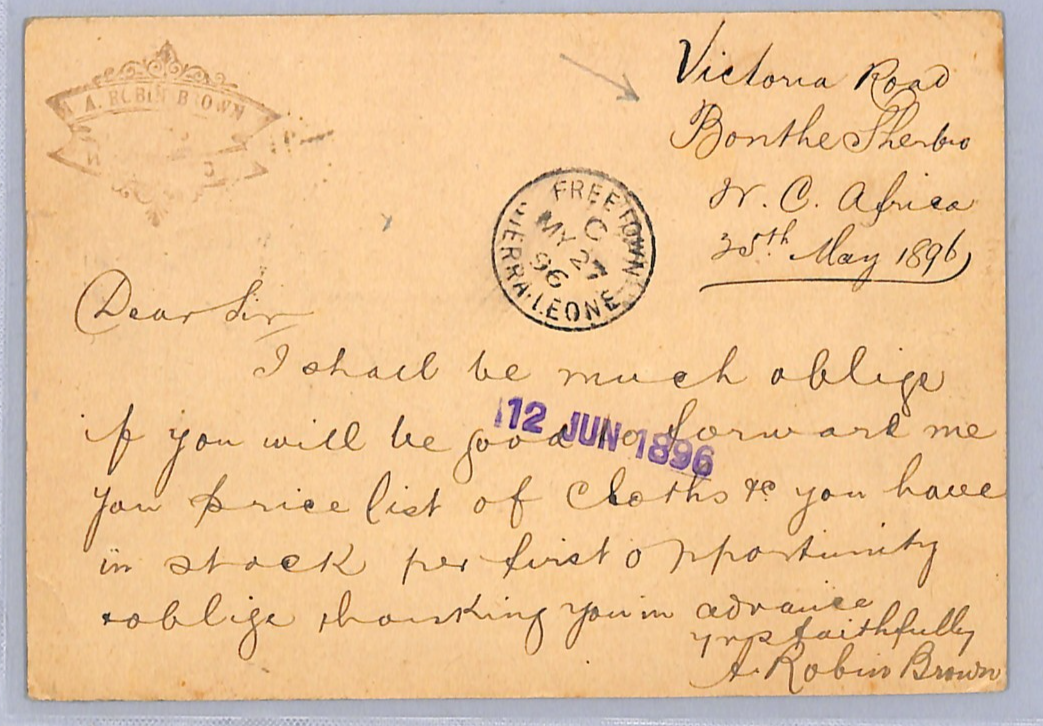 A. ROBIN BROWN
Victoria Road
Bonthe Sherbro
W. C. Africa
25th May 1896
FREETOWN
C
MY 27
96
SIERRA·LEONE
Dear Sir
I shall be much oblige
if you will be good to forward me
you price list of Cloths &c you have
in stock per first opportunity
& oblige thanking you in advance
12 JUN 1896
yrs faithfully
A. Robin Brown